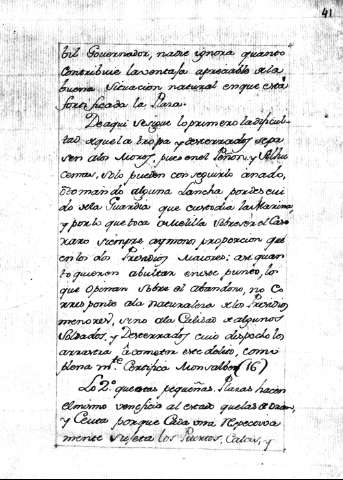 41
bil Governador, nadie ignora quanto
contribuie la ventaja apreciable de la
buena situacion natural en que está
fortificada la Plaza.
De aqui se sigue lo primero la dificul-
tad de que la tropa y desterrados se pa
sen á los Moros, pues en el Peñon, y Alhu
cemas, solo pueden conseguirlo á nado,
ó tomando alguna Lancha por descui
do de la Guardia que custodia la Marina,
y por lo que toca á Melilla
siempre proporcion que
en los dos Presidios Maiores: asi quan
to quieren abultar en este punto, los
que opinan sobre el abandono, no Co
rresponde á la naturaleza de los Presidios
menores, sino á la Calidad de algunos
Soldados, y Desterrados cuio despecho los
arrastra á cometer este delito, como
plena mte Certifica Monsalbe (16)
Lo 2º que estas pequeñas Plazas hacen
el mismo veneficio al estado que las de Oran,
y Ceuta porque Cada una respectiva
mente sujeta los Puertos, Calas, y